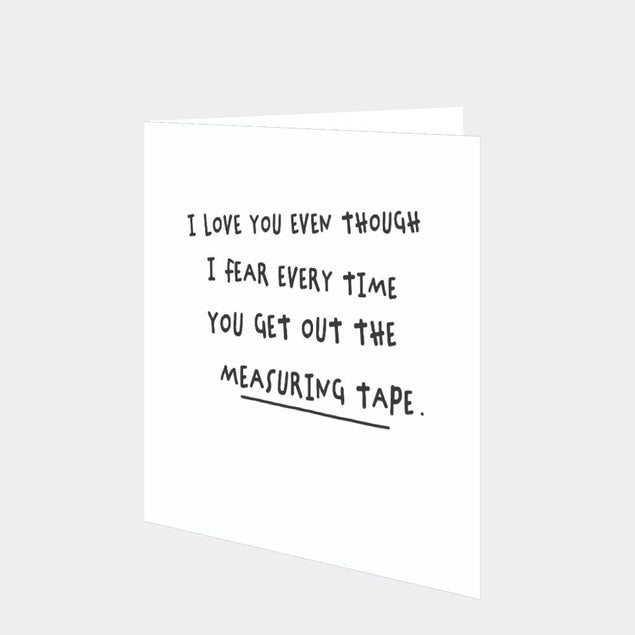 I LOVE YOU EVEN THOUGH
I FEAR EVERY TIME
YOU GET OUT THE
MEASURING TAPE.